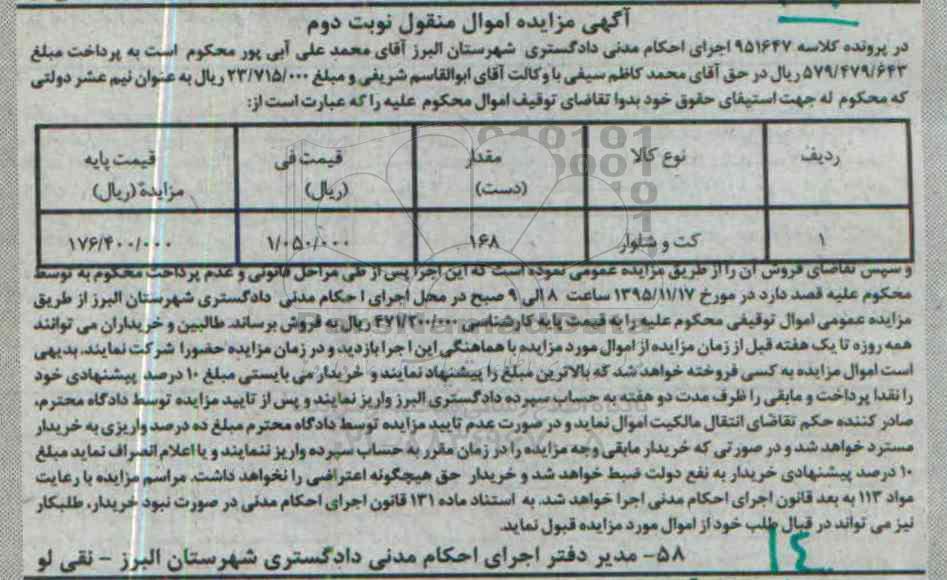 آگهی مزایده اموال منقول نوبت دوم
در پرونده کلاسه ۹۵۱۶۴۷ اجرای احکام مدنی دادگستری شهرستان البرز آقای محمد علی آبی پور محکوم است به پرداخت مبلغ
۵۷۹/۴۷۹/۶۴۳ ریال در حق آقای محمد کاظم سیفی با وکالت آقای ابوالقاسم شریفی و مبلغ ۲۳/۷۱۵/۰۰۰ ریال به عنوان نیم عشر دولتی
که محکوم له جهت استیفای حقوق خود بدوا تقاضای توقیف اموال محکوم علیه را که عبارت است از:
ردیف نوع کالا مقدار (دست) قیمت فی (ریال) قیمت پایه مزایدة (ریال)
۱ کت و شلوار ۱۶۸ ۱/۰۵۰/۰۰۰ ۱۷۶/۴۰۰/۰۰۰
و سپس تقاضای فروش آن را از طریق مزایده عمومی نموده است که این اجرا پس از طی مراحل قانونی و عدم پرداخت محکوم به توسط
محکوم علیه قصد دارد در مورخ ۱۳۹۵/۱۱/۱۷ ساعت ۸ الی ۹ صبح در محل اجرای احکام مدنی دادگستری شهرستان البرز از طریق
مزایده عمومی اموال توقیفی محکوم علیه را به قیمت پایه کارشناسی ۴۷۱/۳۰۰/۰۰۰ ریال به فروش برساند. طالبین و خریداران می توانند
همه روزه تا یک هفته قبل از زمان مزایده از اموال مورد مزایده با هماهنگی این اجرا بازدید و در زمان مزایده حضورا شرکت نمایند. بدیهی
است اموال مزایده به کسی فروخته خواهد شد که بالاترین مبلغ را پیشنهاد نمایند و خریدار می بایستی مبلغ ۱۰ درصد پیشنهادی خود
را نقدا پرداخت و مابقی را ظرف مدت دو هفته به حساب سپرده دادگستری البرز واریز نمایند و پس از تایید مزایده توسط دادگاه محترم،
صادر کننده حکم تقاضای انتقال مالکیت اموال نماید و در صورت عدم تایید مزایده توسط دادگاه محترم مبلغ ده درصد واریزی به خریدار
مسترد خواهد شد و در صورتی که خریدار مابقی وجه مزایده را در زمان مقرر به حساب سپرده واریز ننمایند و یا اعلام انصراف نماید مبلغ
۱۰ درصد پیشنهادی خریدار به نفع دولت ضبط خواهد شد و خریدار حق هیچگونه اعتراضی را نخواهد داشت. مراسم مزایده با رعایت
مواد ۱۱۳ به بعد قانون اجرای احکام مدنی اجرا خواهد شد. به استناد ماده ۱۳۱ قانون اجرای احکام مدنی در صورت نبود خریدار، طلبکار
نیز می تواند در قبال طلب خود از اموال مورد مزایده قبول نماید.
۵۸- مدیر دفتر اجرای احکام مدنی دادگستری شهرستان البرز - نقی لو